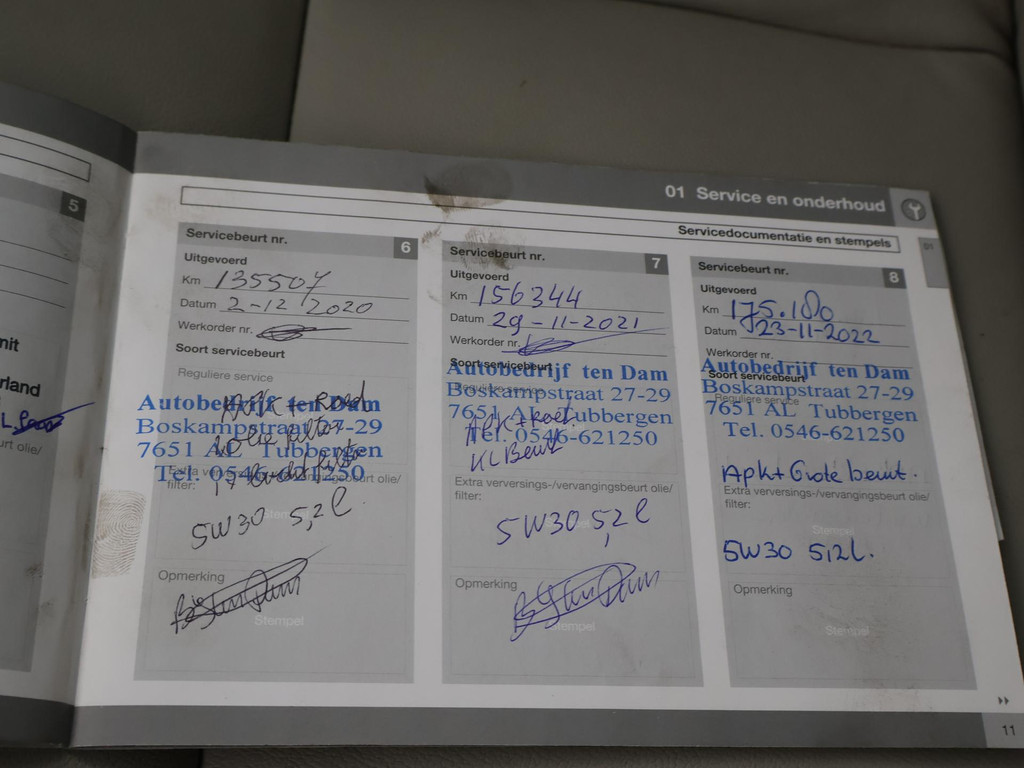 5
nit
rland
urt olie/
01 Service en onderhoud
Servicedocumentatie en stempels
01
Servicebeurt nr. 6
Uitgevoerd
Km 135507
Datum 2-12 2020
Werkorder nr.
Soort servicebeurt
Reguliere service
Autobedrijf ten Dam
Boskampstraat 27-29
7651 AL Tubbergen
Tel. 0546-621250
Extra verversings-/vervangingsbeurt olie/
filter:
5W30 5,2l
Opmerking
Stempel
Servicebeurt nr. 7
Uitgevoerd
Km 156344
Datum 29-11-2021
Werkorder nr.
Soort servicebeurt
Reguliere service
Autobedrijf ten Dam
Boskampstraat 27-29
7651 AL Tubbergen
Tel. 0546-621250
KL Beurt
Extra verversings-/vervangingsbeurt olie/
filter:
5W30 5,2l
Opmerking
Stempel
Servicebeurt nr. 8
Uitgevoerd
Km 175.180
Datum 23-11-2022
Werkorder nr.
Soort servicebeurt
Reguliere service
Autobedrijf ten Dam
Boskampstraat 27-29
7651 AL Tubbergen
Tel. 0546-621250
Apk + Grote beurt.
Extra verversings-/vervangingsbeurt olie/
filter:
Stempel
5W30 5,2l.
Opmerking
Stempel
11